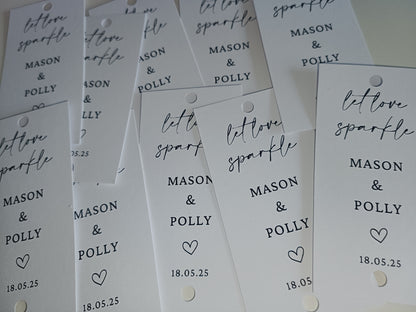 let love
sparkle
MASON
&
POLLY
let love
sparkle
MASON
&
POLLY
18.05.25
let love
sparkle
MASON
&
POLLY
let love
sparkle
MASON
&
POLLY
let love
sparkle
let love
sparkle
MASON
&
POLLY
18.05.25
MASON
&
POLLY
18.05.25
let love
sparkle
MASON
&
POLLY
18.05.25
let love
sparkle
MASON
&
POLLY
18.05
let love
sparkle
MASON
&
POLLY
18.05.25